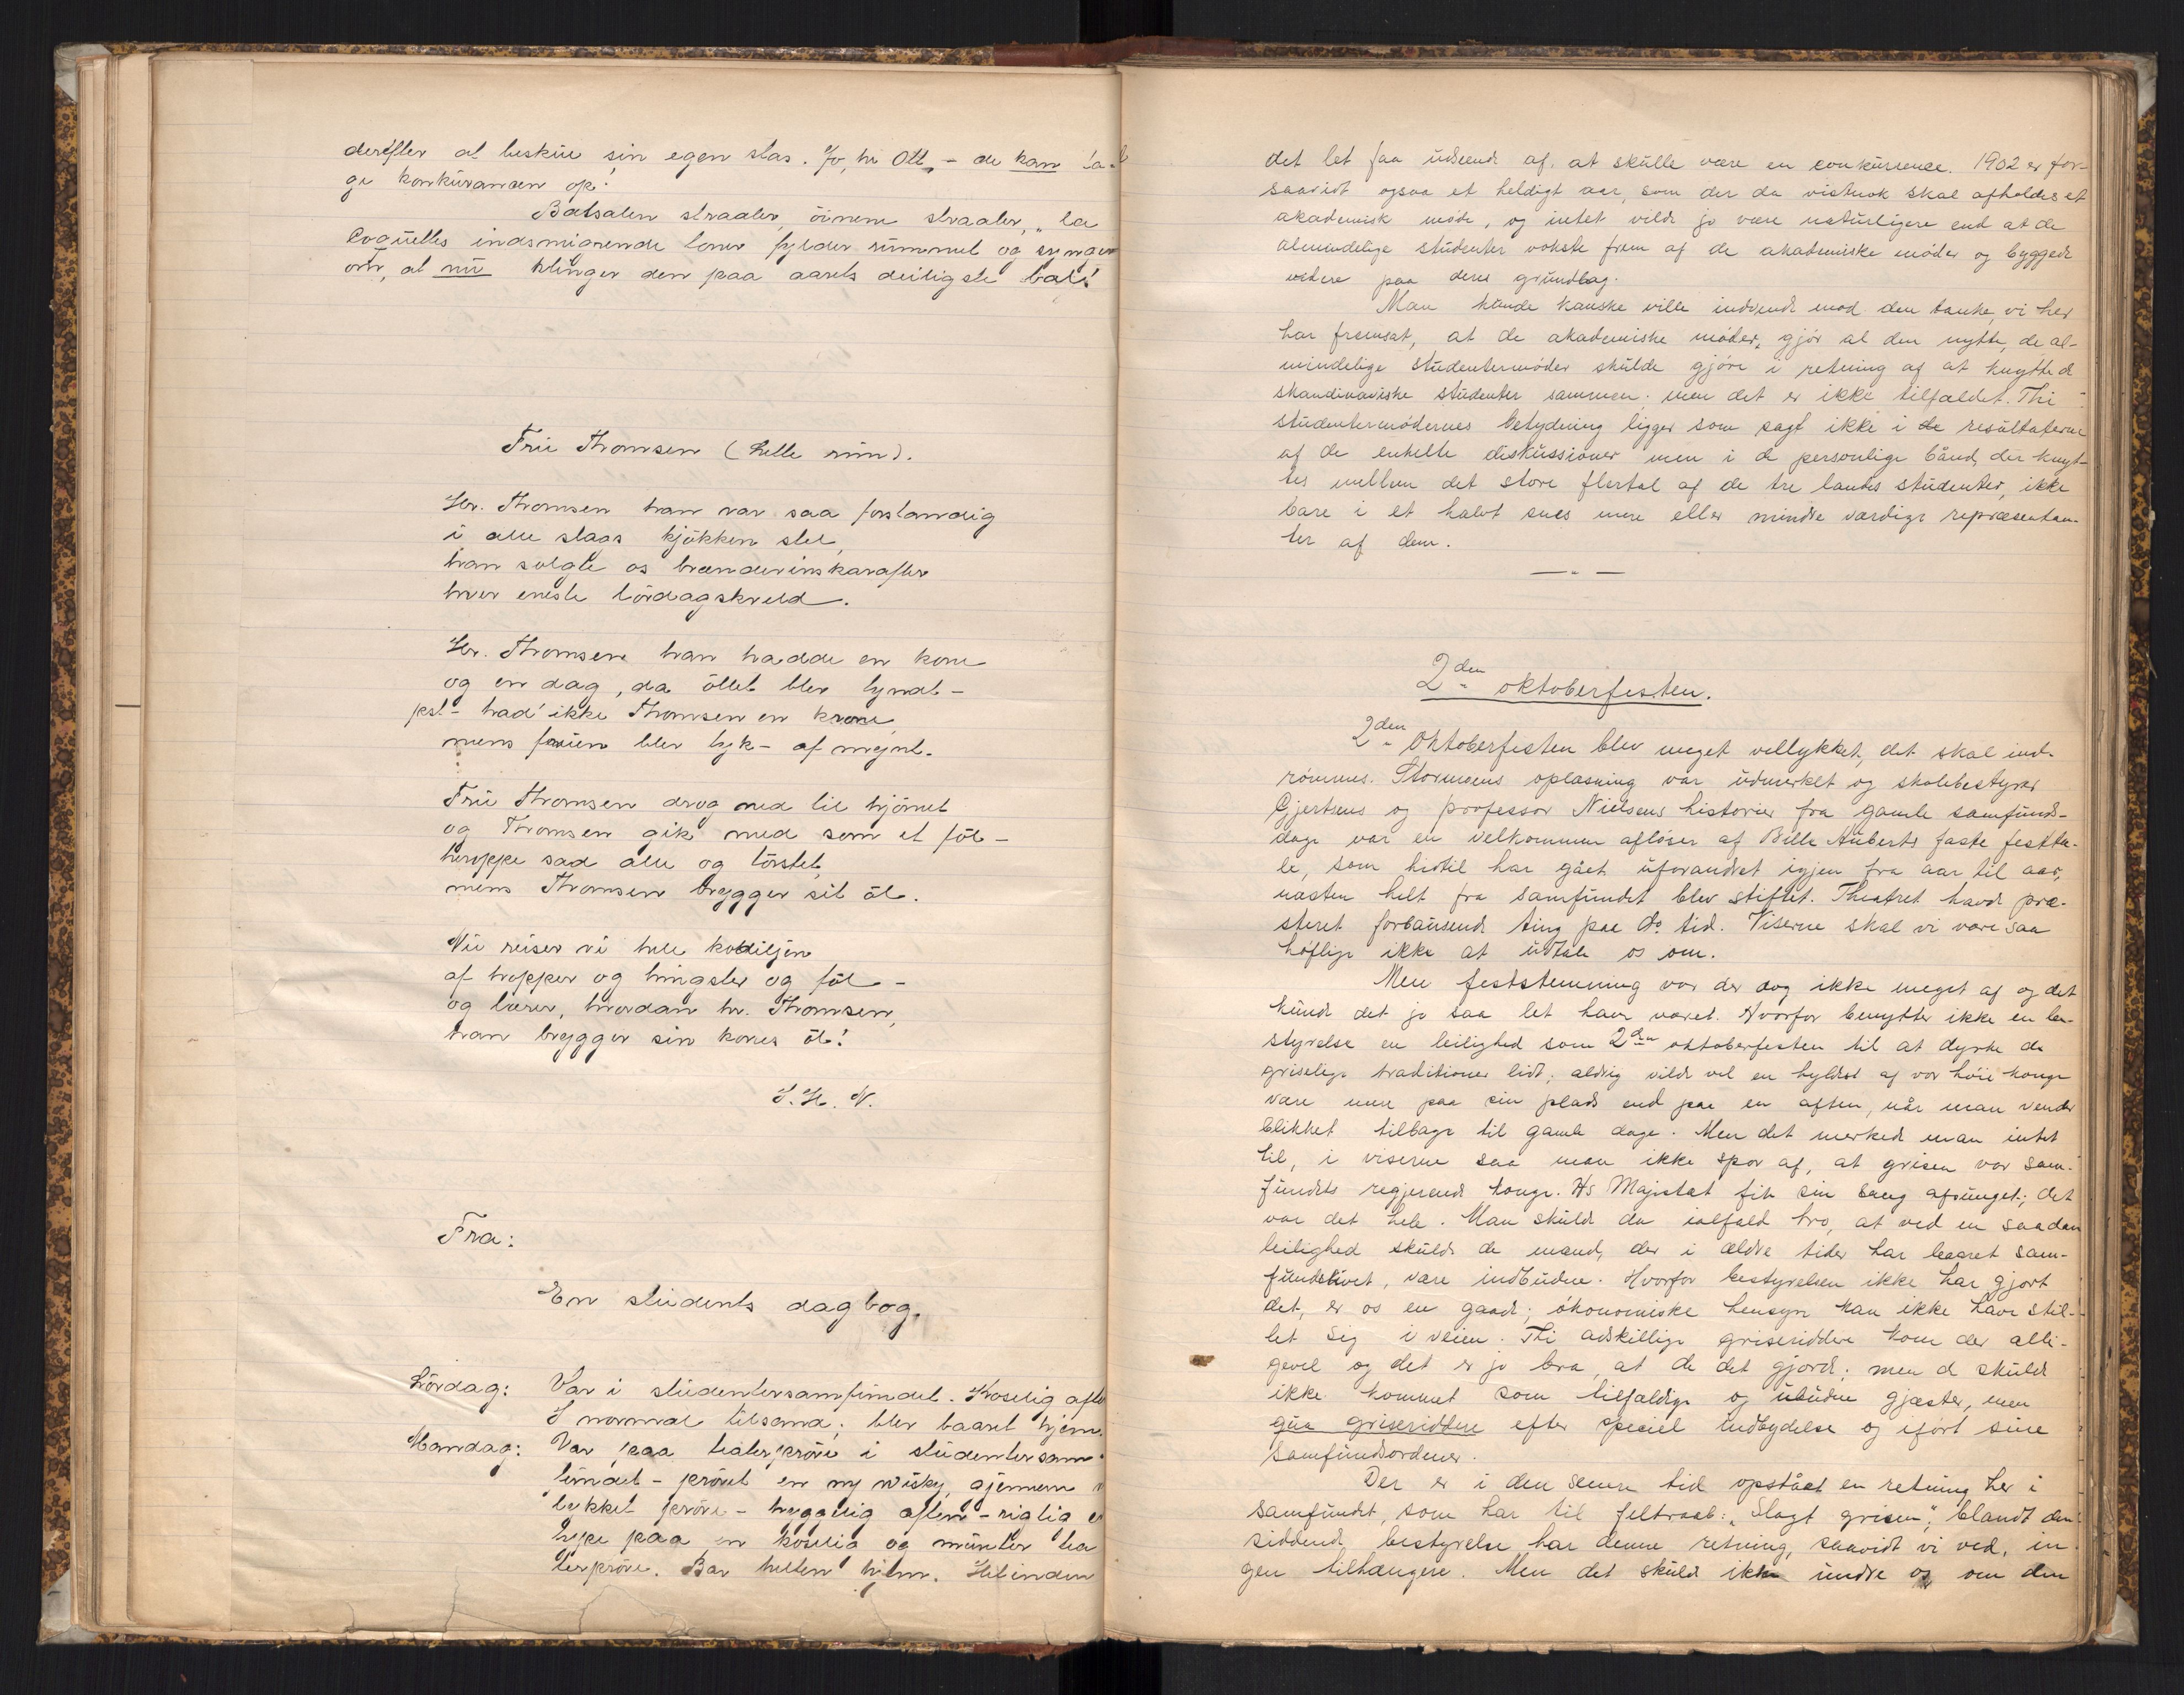 derefter at beskue sin egen stas. Jo, hr Ott, – de kan ta-
ge konkurancen op!
Balsalen straaler, öinene straaler, „La
Coquettes indsmigrende toner fylder rummet og synger
om, at nu klinger den paa aarets deiligste bal!
Fru Thomsen (Lette rim).
Hr. Thomsen han var saa forstandig
i alle slags kjökken stel,
han solgte os brændevinskarafler
hver eneste lördagskveld.
Hr. Thomsen han hadde en kone
og en dag, da öllet blev tyndt –
pst – had' ikke Thomsen en krone
mens fruen blev tyk – af mynt.
Fru Thomsen drog ned til hjörnet
og Thomsen gik med som et föl –
heroppe sad alle og törstet,
mens Thomsen brygger sit öl.
Nu reiser vi hele kobbeljen
af hopper og hingster og föl –
og lærer, hvordan hr. Thomsen,
han brygger sin kones öl!
S. H. N.
Fra:
En students dagbog.
Lördag: Var i studentersamfundet. Koselig afte
I normal tilstand; blev baaret hjem.
Mandag: Var paa teaterpröve i studentersam-
fundet – prövet en ny wisky, gjennem
lykket pröve – hyggelig aften – rigtig e
type paa en koselig og munter tea
terpröve. Bar helten hjem. Heltinden
det let faa udseende af, at skulle være en konkurrence. 1902 er for-
saavidt ogsaa et heldigt aar, som der da vistnok skal afholdes et
akademisk möde, og intet vilde jo være naturligere end at de
almindelige studenter vokste frem af de akademiske möder og byggede
videre paa deres grundlag.
Man kunde kanske ville indvende mod den tanke, vi her
har fremsat, at de akademiske möder, gjör al den nytte, de al-
mindelige studentermöder skulde gjöre i retning af at knytte de
skandinaviske studenter sammen; men det er ikke tilfældet. Thi
studentermödernes betydning ligger som sagt ikke i de resultaterne
af de enkelte diskussioner men i de personlige bånd, der knyt-
tes mellem det store flertal af de tre landes studenter, ikke
bare i et halvt snes mere eller mindre værdige repræsentan-
ter af dem.
2den oktoberfesten.
2den oktoberfesten blev meget vellykket, det skal ind-
römmes. Stormoens oplæsning var udmerket og skolebestyrer
Gjertsens og professor Nielsens historier fra gamle samfunds-
dage var en velkommen aflöser af Bille Auberts faste festta-
le, som hidtil har gået uforandret igjen fra aar til aar,
næsten helt fra samfundet blev stiftet. Theatret havde præ-
steret forbausende ting paa do. tid. Viserne skal vi være saa
höflige ikke at udtale os om.
Men feststemning var der dog ikke meget af og det
kunde det jo saa let have været. Hvorfor benytter ikke en be-
styrelse en leilighed som 2den oktoberfesten til at dyrke de
griselige traditioner lidt; aldrig vilde vel en hyldest af vor höie konge
være mere paa sin plads end paa en aften, når man vender
blikket tilbage til gamle dage. Men det merkede man intet
til, i viserne saa man ikke spor af, at grisen var sam-
fundets regjerende konge. Hs Majestæt fik sin sang afsunget; det
var det hele. Man skulde da ialfald tro, at ved en saadan
leilighed skulde de mænd, der i ældre tider har baaret sam-
fundslivet, være indbudne. Hvorfor bestyrelsen ikke har gjort
det, er os en gaade; ökonomiske hensyn kan ikke have stil-
let sig i veien. Thi adskillige griseriddere kom der alli-
gevel og det er jo bra, at de det gjorde; men de skulde
ikke kommet som tilfældige og ubudne gjæster, men
qua griseriddere efter speciel indbydelse og ifört sine
samfundsordener.
Der er i den senere tid opstået en retning her i
samfundet, som har til feltraab: „Slagt grisen“, blandt den
siddende bestyrelse har denne retning, saavidt vi ved, in-
gen tilhængere. Men det skulde ikke undre os om den